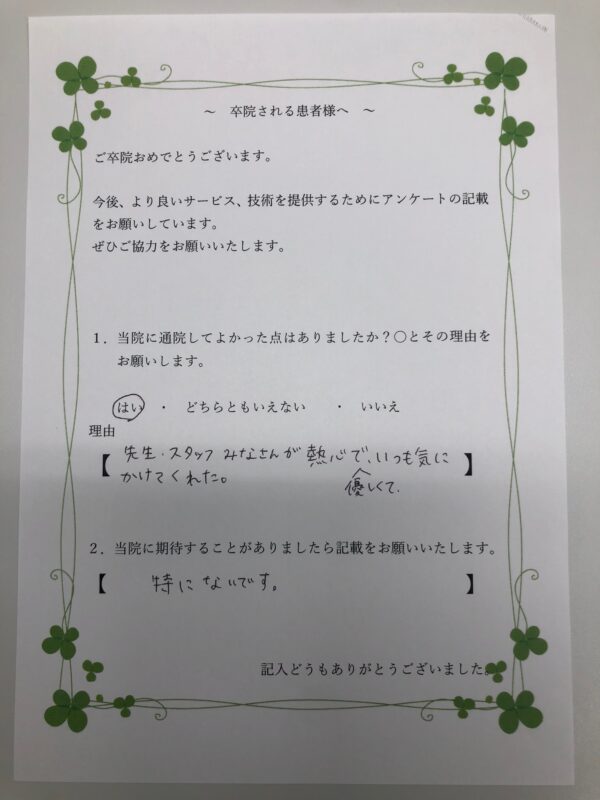 ～ 卒院される患者様へ ～
ご卒院おめでとうございます。
今後、より良いサービス、技術を提供するためにアンケートの記載
をお願いしています。
ぜひご協力をお願いいたします。
１．当院に通院してよかった点はありましたか？〇とその理由を
お願いします。
はい ・ どちらともいえない ・ いいえ
理由
【 先生・スタッフ みなさんが 熱心で、いつも気に 】
かけてくれた。 優しくて、
２．当院に期待することがありましたら記載をお願いいたします。
【 特にないです。 】
記入どうもありがとうございました。